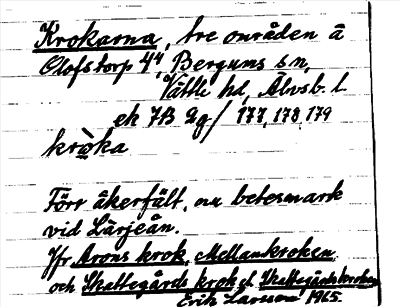 Krokarna, tre områden å
Olofstorp 4⁴ Bergums sn,
Vättle hd, Älvsb. l.
ek 7B 2g/ 177, 178, 179
kròka
Förr åkerfält, nu betesmark
vid Lärjeån.
Jfr Arons krok, Mellankroken
och Skattegårds krok el. Skattegårdskroken
Erik Larsson 1965.